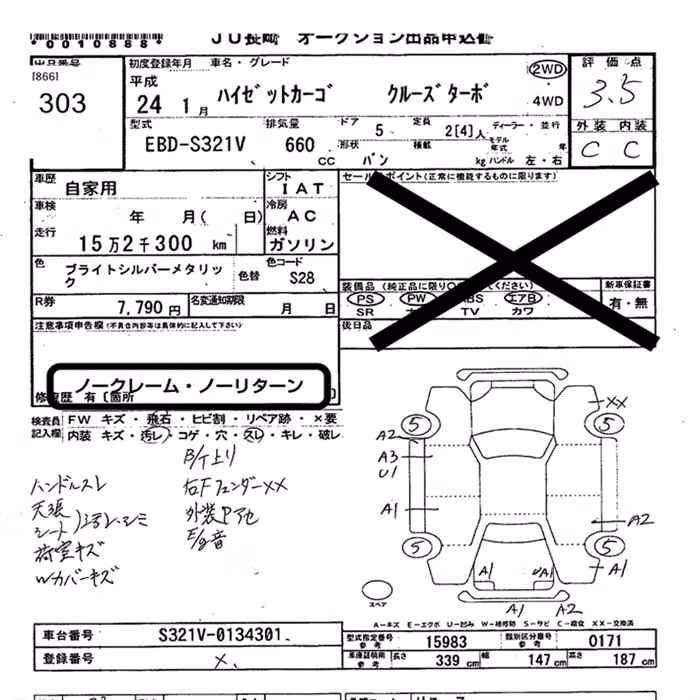 *0010868* JU長崎 オークション出品申込書
出品番号 初度登録年月 車名・グレード 評価点
[866] 平成 2WD
303 24 1月 ハイゼットカーゴ クルーズターボ 4WD 3.5
型式 排気量 ドア 5 定員 2[4]人 ディーラー・並行 外装 内装
EBD-S321V 660 cc 形状 バン 積載 kg モデル年式 年 ハンドル 左・右 C C
車歴 自家用 シフト IAT セールスポイント(正常に機能するものに限ります)
車検 年 月( 日) 冷房 AC
走行 15万2千300km 燃料 ガソリン
色 ブライトシルバーメタリック 色替 色コード S28
装備品(純正品に限り○ ください) 新車保証書
R券 7,790円 名変通知期限 月 日 PS PW ABS エアB 有・無
SR TV カワ
注意事項申告欄(不具合内容等は具体的に記入して下さい) 後日品
ノークレーム・ノーリターン
修復歴 有〔箇所 〕
検査員 FW キズ・飛石・ヒビ割・リペア跡・×要
記入欄 内装 キズ・汚レ・コゲ・穴・スレ・キレ・破レ
B/T上り
ハンドルスレ 右Fフェンダーxx
天張
シート
外装
荷室キズ E/g音
Wカバーキズ
XX
5 5
A2
A3
U1
A1 A2
5 5
A1
A1 A1
スペア A1 A2
A-キズ E-エクボ U-凹み W-補修跡 S-サビ C-腐食 XX-交換済
車台番号 S321V-0134301 型式指定番号 参考 15983 類別区分番号 参考 0171
登録番号 ×. 車庫証明用 参考 長さ 339cm 幅 147cm 高さ 187cm